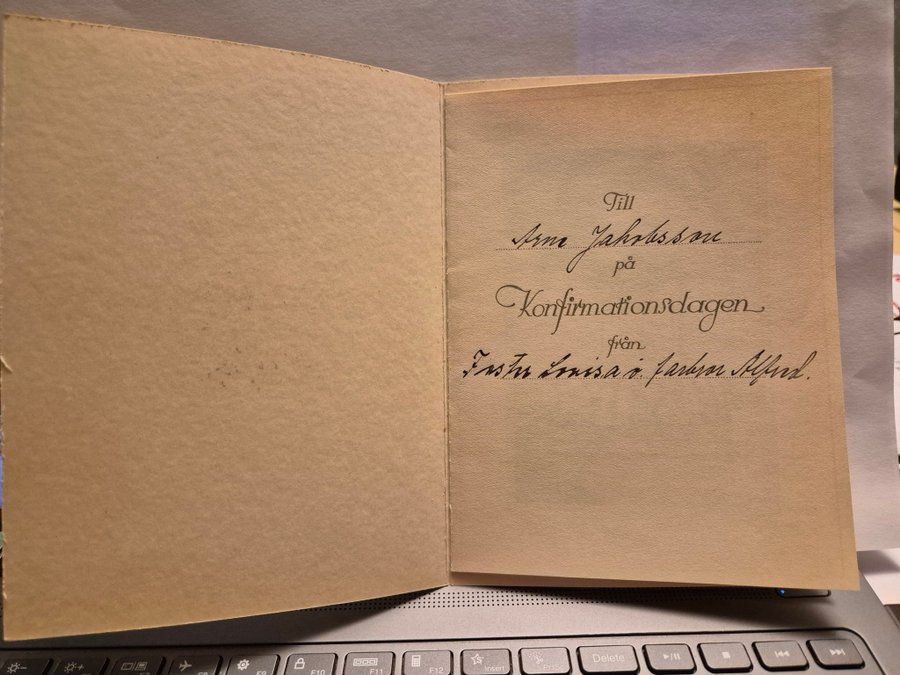 Till
Arne Jakobsson
på
Konfirmationsdagen
från
Faster Lovisa o. farbror Alfred.
F10
F11
F12
Insert
Delete